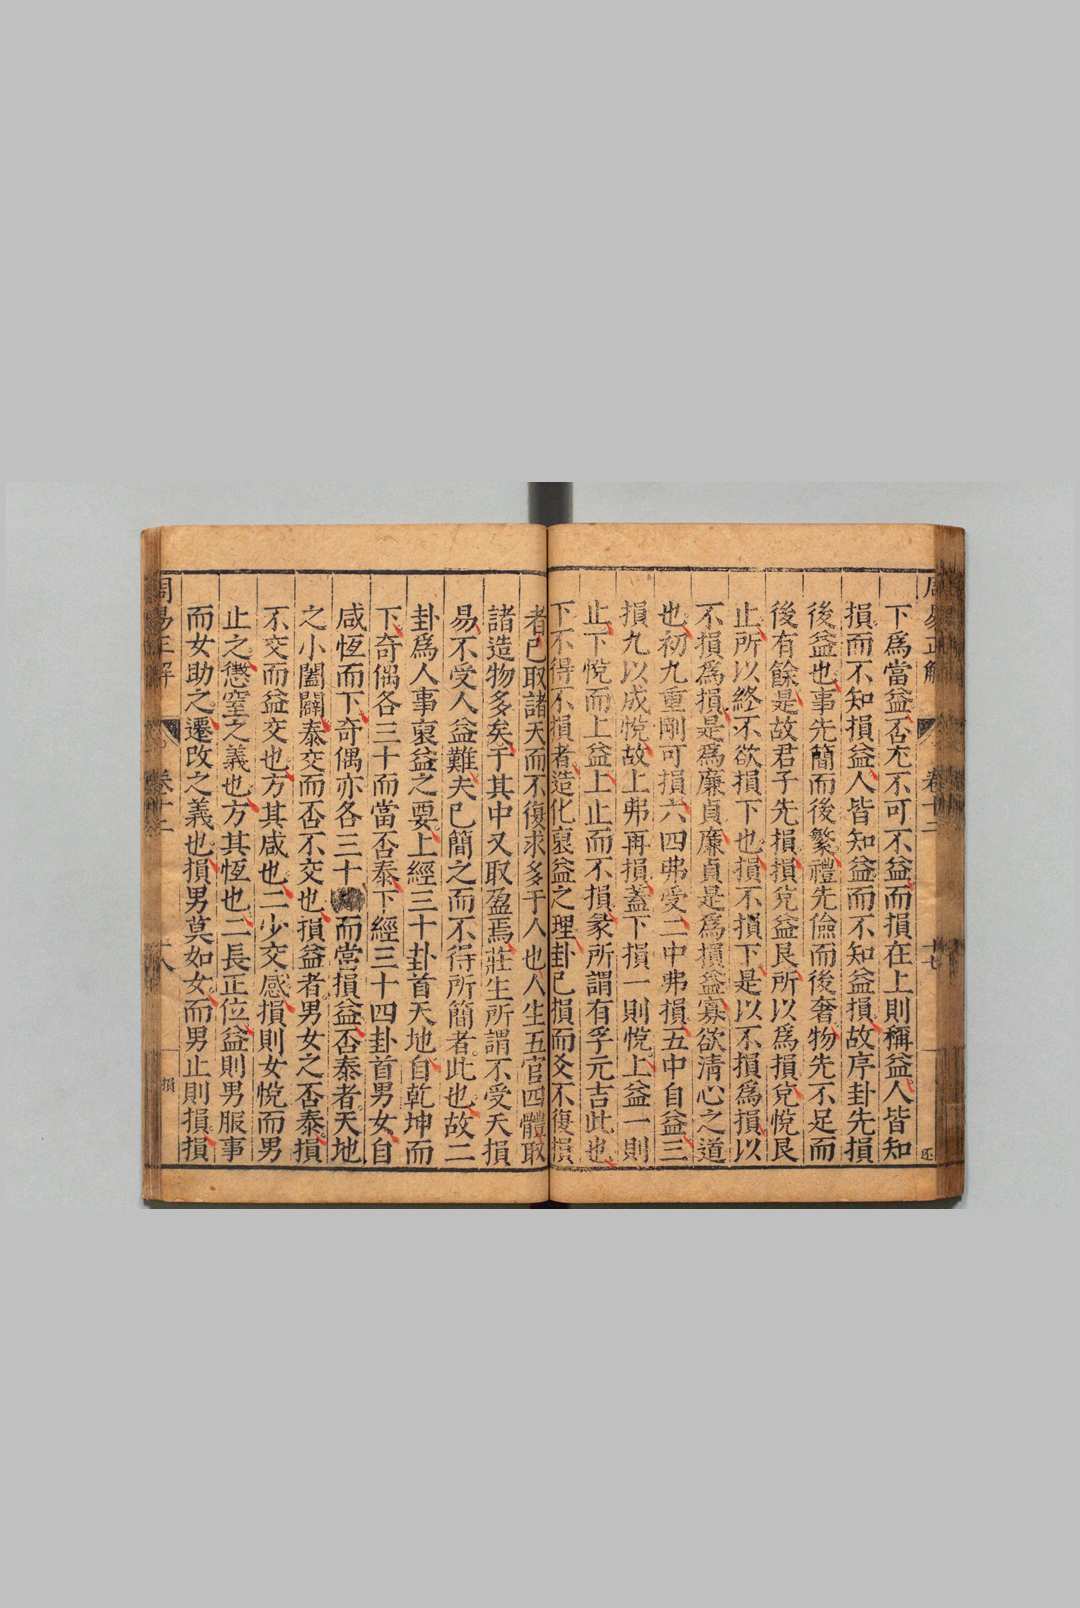 周易正解 卷十二 十七
下爲當益否尤不可不益而損在上則稱益人皆知
損而不知損益人皆知益而不知益損故序卦先損
後益也事先簡而後繁禮先儉而後奢物先不足而
後有餘是故君子先損損兌益艮所以爲損兌悅艮
止所以終不欲損下也損不損下是以不損爲損以
不損爲損是爲廉貞廉貞是爲損益寡欲淸心之道
也初九重剛可損六四弗受二中弗損五中自益三
損九以成悅故上弗再損蓋下損一則悅上益一則
止下悅而上益上止而不損彖所謂有孚元吉此也
下不得不損者造化裒益之理卦已損而爻不復損
者已取諸天而不復求多于人也人生五官四體取
諸造物多矣于其中又取盈焉莊生所謂不受天損
易不受人益難夫已簡之而不得所簡者此也故二
卦爲人事裒益之要上經三十卦首天地自乾坤而
下奇偶各三十而當否泰下經三十四卦首男女自
咸恆而下奇偶亦各三十而當損益否泰者天地
之小闔闢泰交而否不交也損益者男女之否泰損
不交而益交也方其咸也二少交感損則女悅而男
止之懲窒之義也方其恆也二長正位益則男服事
而女助之遷改之義也損男莫如女而男止則損損
周易正解 卷十二 十八 損